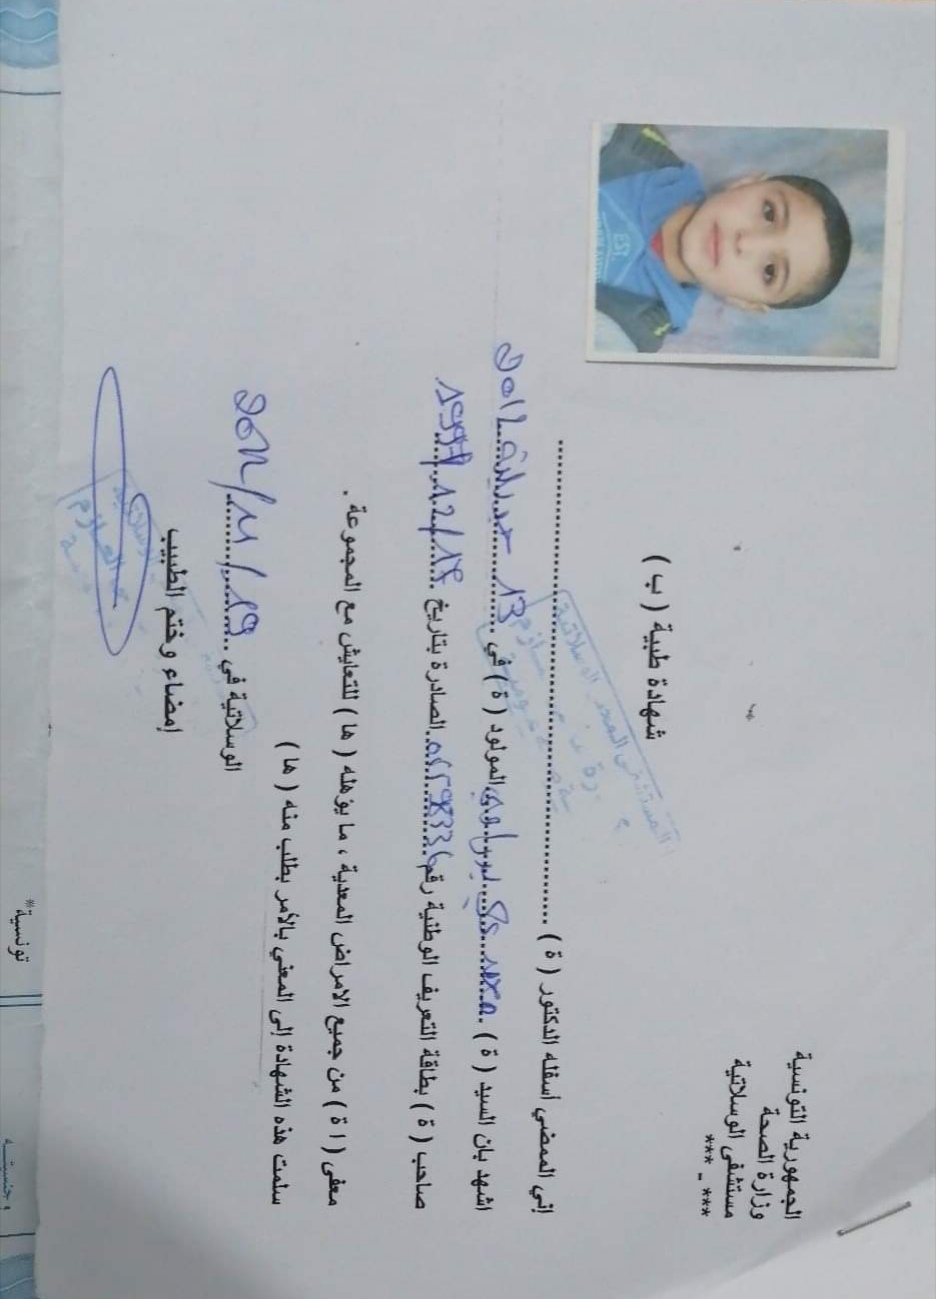 الجمهورية التونسية
وزارة الصحة
مستشفى الوسلاتية
*** - ***
شهادة طبية ( ب )
إني الممضي أسفله الدكتور ( ة ) ..............................
اشهد بان السيد ( ة ) ............ المولود ( ة ) في 13 جويلية 2012
صاحب ( ة ) بطاقة التعريف الوطنية رقم ............ الصادرة بتاريخ 1997/12/17
معفى ( ا ة ) من جميع الامراض المعدية ، ما يؤهله ( ها ) للتعايش مع المجموعة .
سلمت هذه الشهادة إلى المعني بالأمر بطلب منه ( ها )
الوسلاتية في 19/11/
إمضاء وختم الطبيب
المستشفى المحلي الوسلاتية
تونسية*